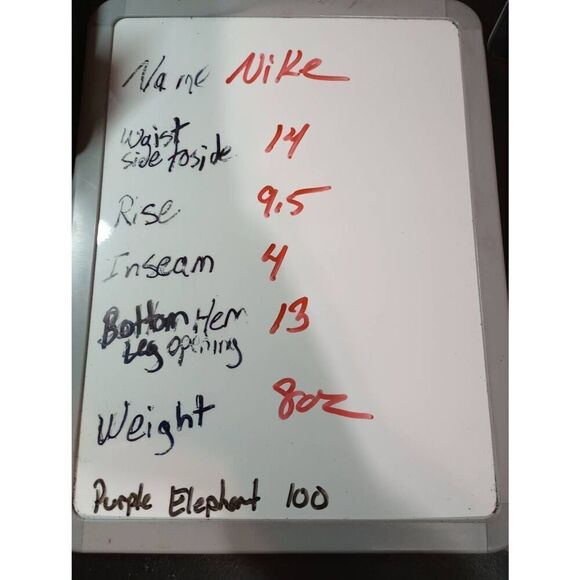 Name Nike
Waist
side to side 14
Rise 9.5
Inseam 4
Bottom Hem 13
Leg opening
Weight 8oz
Purple Elephant 100